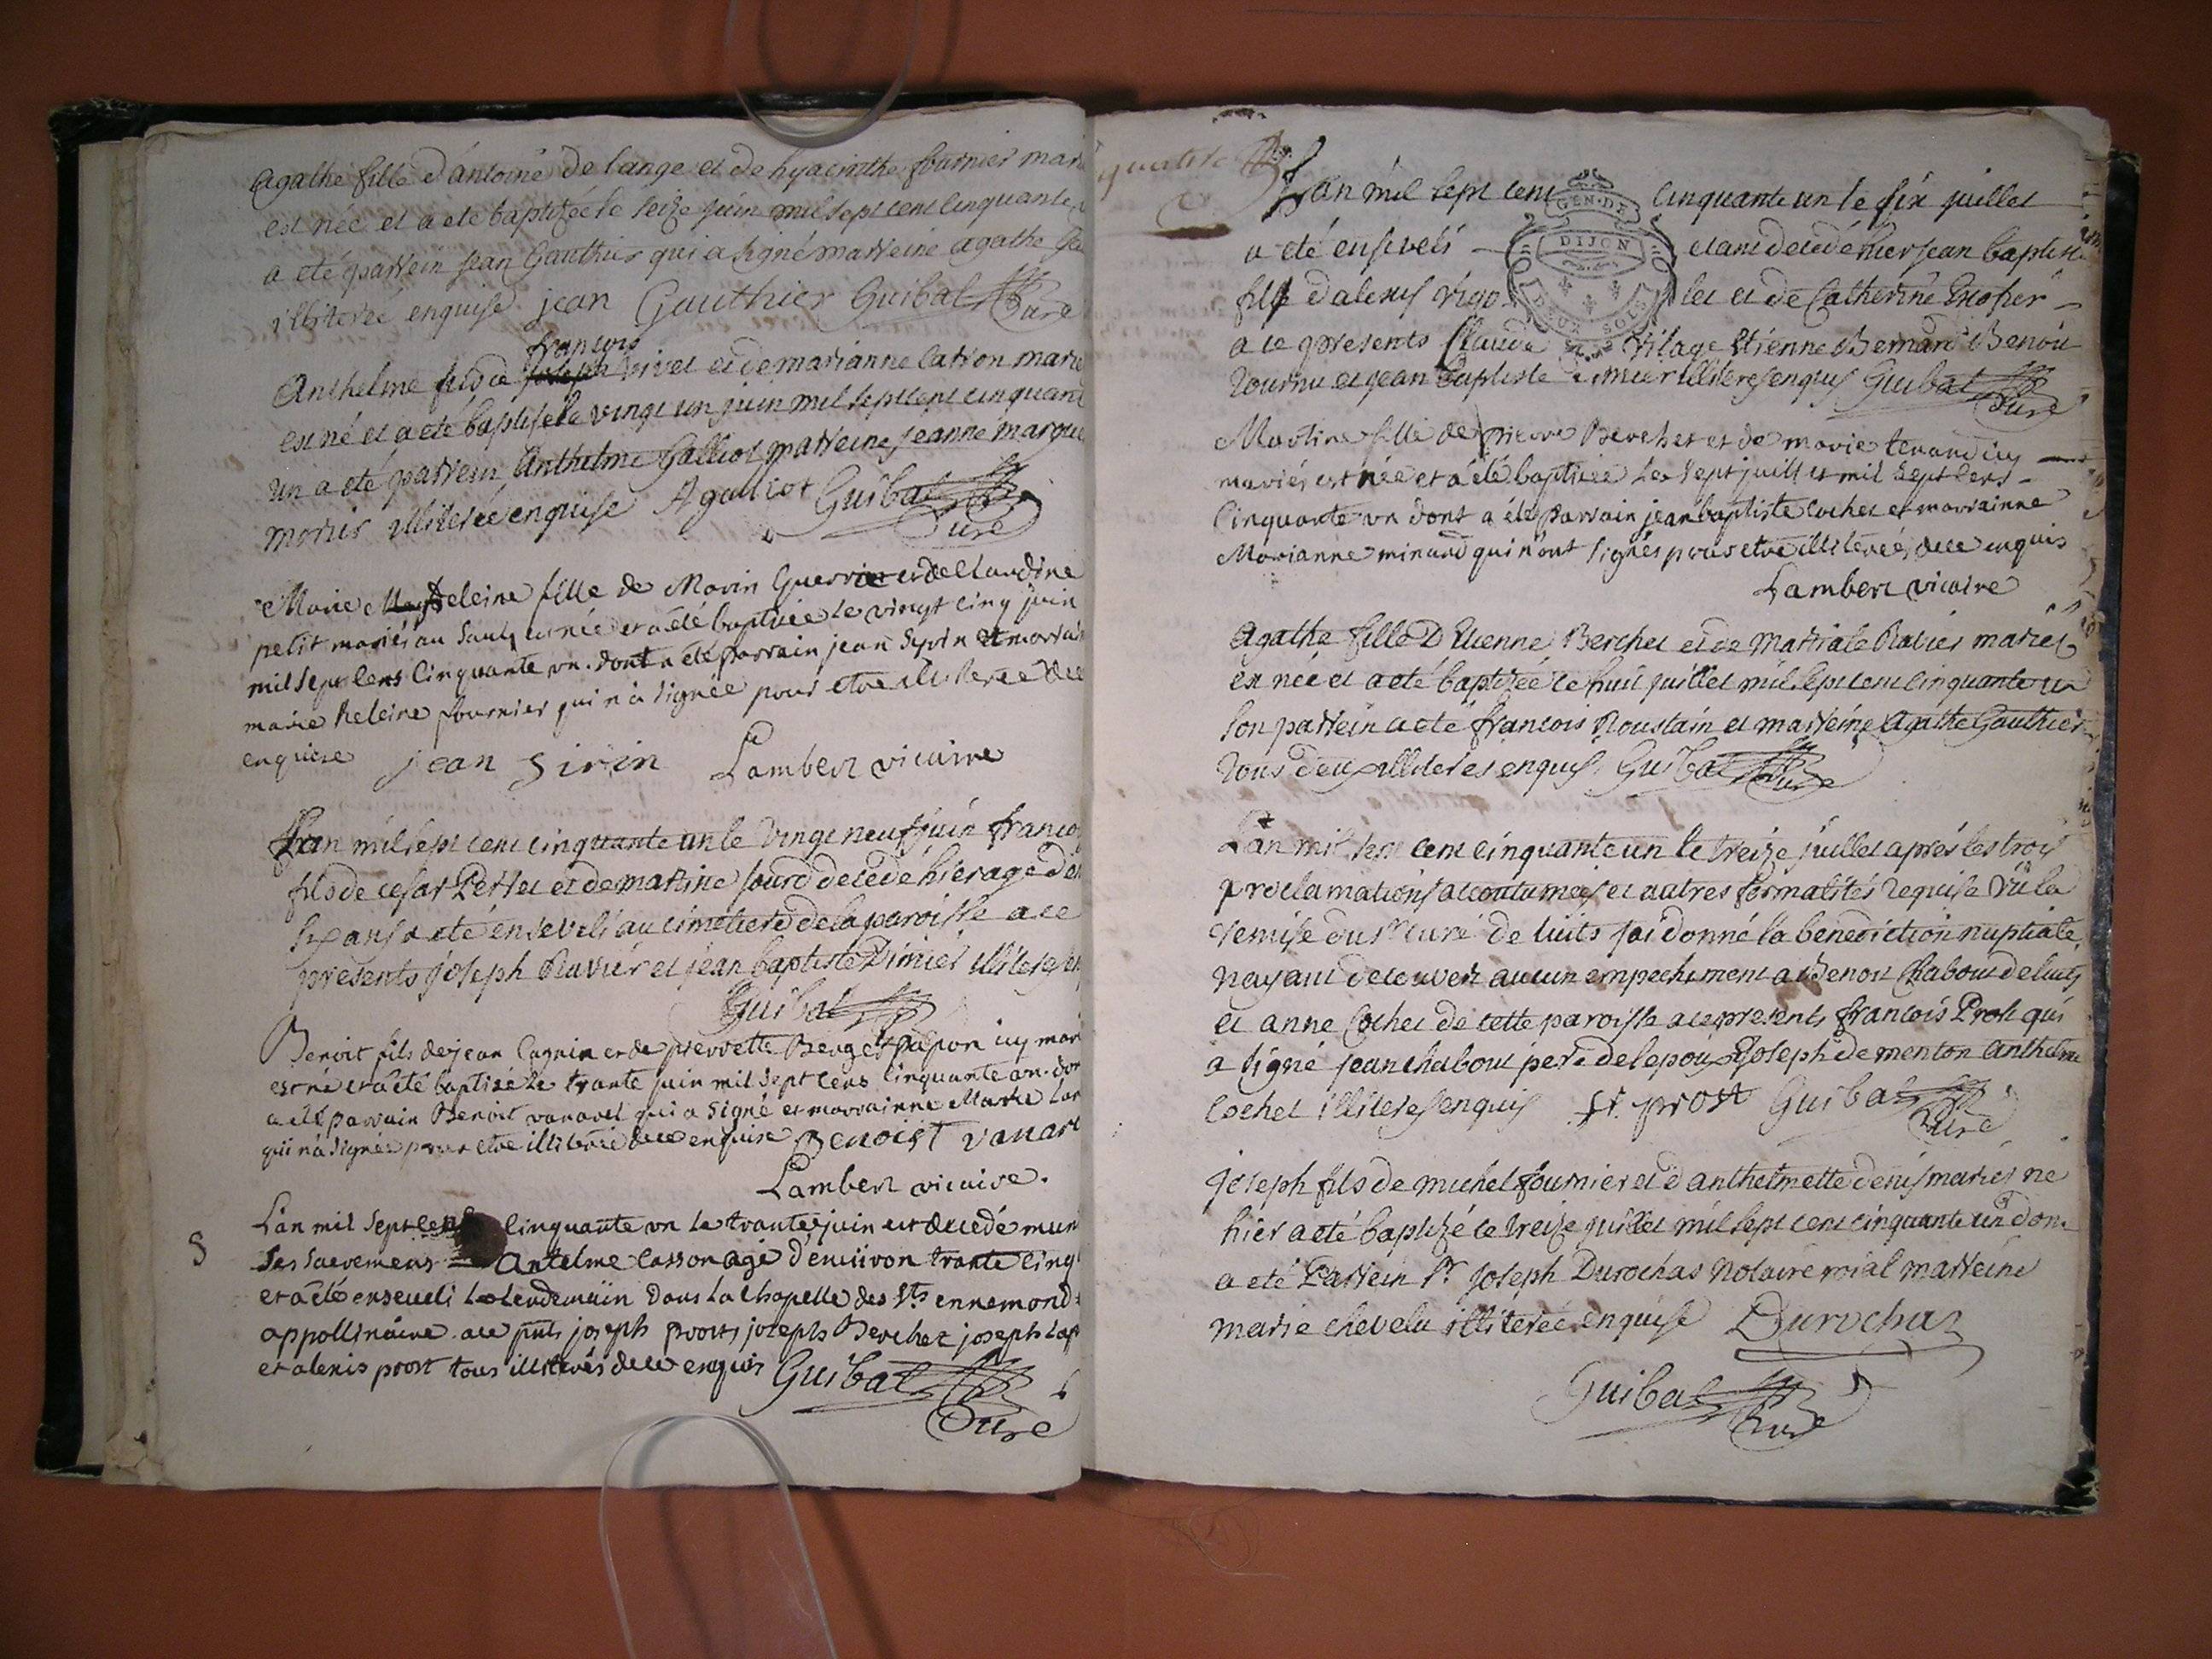 Agathe fille d'antoine de lange et de hyacinthe fournier mari
est née et a eté baptizée le seize juin mil sept cent cinquante
a eté parrein jean Gauthier qui a signé marreine agathe Ga
illiterée enquise jean Gauthier Guibal Curé
françois
Anthelme fils de joseph vivet et de marianne Catton marie
est né et a eté baptisé le vingt un juin mil sept cent cinquant
un a eté parrein Anthelme Galliot marreine jeanne margue
illiterée enquise A galliot Guibal Curé
Marie Magdeleine fille de Marin Guerrin et de Claudine
petit mariés au est née et a été baptisée le vingt cinq juin
mil sept cens cinquante un. dont a été parrain jean Sirin et marrai
marie heleine fournier qui n'a signée pour etre illiterée de ce
enquise jean Sirin Lambert vicaire
Lan mil sept cent cinquante un le vingt neuf juin franco
fils de cesar Perret et de martine sourd decedé hier agé de
six ans a eté enseveli au cimetiere de la paroisse a ce
presents joseph Ravier et jean baptiste Dimier illiteres en
Guibal
Benoit fils de jean Cagnin et de pierrette Berget papon icy mari
est né et a été baptisé le trante juin mil sept cens cinquante un. don
a été parrain Benoit vanarel qui a signé et marrainne Marie
qui n'a signée pour etre illiterée de ce enquise BENOIST vanare
Lambert vicaire.
S L'an mil sept cens cinquante un le trante juin est decedé muni
des sacremens Antelme Casson agé d'environ trante cinq
et a été enseveli le lendemain dans la chapelle des Sts ennemond
appollinaire. a ce pnts joseph prost joseph Berchet joseph
et alexis prost tous illiterés de ce enquis Guibal Curé
quatre
Lan mil sept cent cinquante un le six juillet
GEN. DE
DIJON
DEUX SOLS
a eté enseveli etant decedé hier jean baptiste
fils d'alexis Vigo let et de Catherine
a ce presents Claude Vilage Etienne Bernard Benoit
Tournu et jean Baptiste Dimier illiteres enquis Guibal Curé
Martine fille de pierre Berchet et de marie tenand icy
mariés est née et a été baptisée le sept juillet mil sept cens
Cinquante un dont a été parrain jean baptiste Cochet et marrainne
Marianne minand qui n'ont signés pour etre illiterés de ce enquis
Lambert vicaire
Agathe fille d'Etienne Berchet et de Martiale Ravier mariés
est née et a eté baptizée le huit juillet mil sept cent cinquante un
son parrein a eté françois Roustain et marreine Agathe Gauthier
tous deux illiteres enquis. Guibal Curé
Lan mil sept cent cinquante un le treize juillet aprés les trois
proclamations accoutumées et autres formalités requise vû la
remise du sr curé de luits jai donné la benediction nuptiale,
nayant decouvert aucun empechement a Benoit Chabout de luits
et anne Cochet de cette paroisse a ce presents françois Prost qui
a signé jean chabout pere de lepoux joseph de menton anthelme
Cochet illiteres enquis fr. prost Guibal Curé
joseph fils de michel fournier et d'anthelmette denis mariés né
hier a eté baptizé le treize juillet mil sept cent cinquante un dont
a eté Parrein Sr joseph Durochas Notaire roial marreine
marie chevelu illiterée enquise Durochas
Guibal Curé